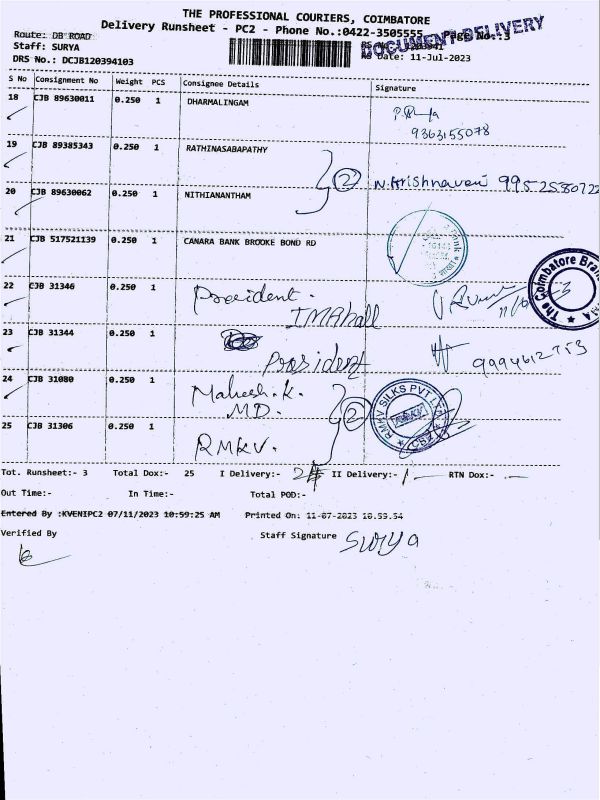 THE PROFESSIONAL COURIERS, COIMBATORE
Delivery Runsheet - PC2 - Phone No.:0422-3505555 Page No.:3
DOCUMENT DELIVERY
Route: DB ROAD
Staff: SURYA
RS Date: 11-Jul-2023
DRS No.: DCJB120394103
S No Consignment No Weight PCS Consignee Details Signature
18 CJB 89630011 0.250 1 DHARMALINGAM
9363155078
19 CJB 89385343 0.250 1 RATHINASABAPATHY
2 N. Krishnaveni 9952580722
20 CJB 89630062 0.250 1 NITHIANANTHAM
21 CJB 517521139 0.250 1 CANARA BANK BROOKE BOND RD
22 CJB 31346 0.250 1 President.
IMA hall
The Coimbatore Bran
23 CJB 31344 0.250 1
President 9994612753
24 CJB 31080 0.250 1 Mahesh.K.
MD. 2
RMKV SILKS PVT LTD
CBE
25 CJB 31306 0.250 1 RMKV.
Tot. Runsheet:- 3 Total Dox:- 25 I Delivery:- II Delivery:- RTN Dox:-
Out Time:- In Time:- Total POD:-
Entered By :KVENIPC2 07/11/2023 10:59:25 AM Printed On: 11-07-2023 10.59.54
Verified By Staff Signature Surya